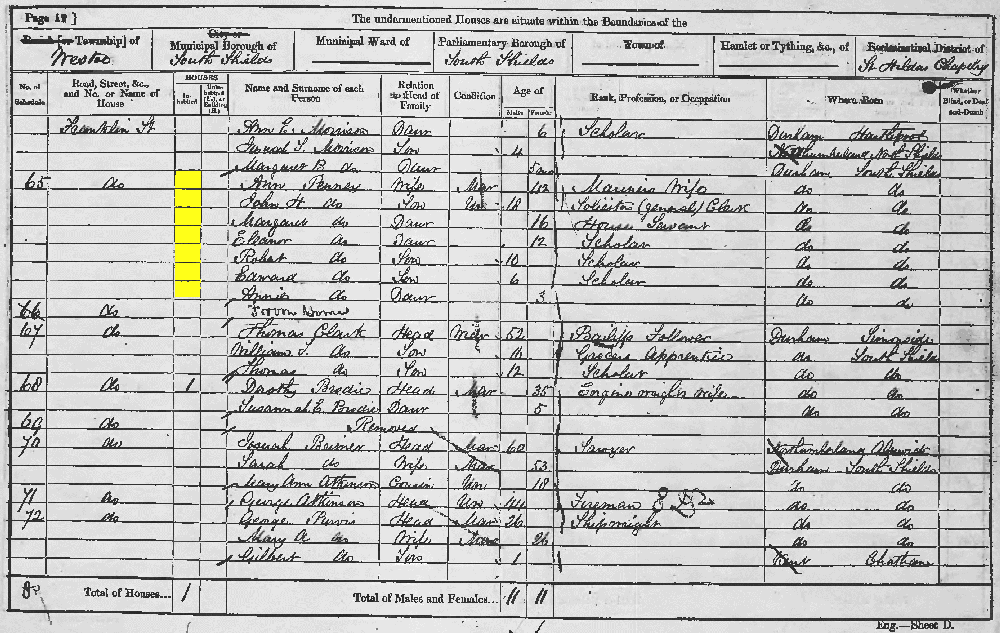 Page 12]
The undermentioned Houses are situate within the Boundaries of the
Township] of
City or
Municipal Borough of
Municipal Ward of
Parliamentary Borough of
Town of
Hamlet or Tything, &c., of
Ecclesiastical District of
Westoe
South Shields
South Shields
St Hildas Chapelry
No. of Schedule
Road, Street, &c., and No. or Name of House
HOUSES
Name and Surname of each Person
Relation to Head of Family
Condition
Age of
Males
Females
Rank, Profession, or Occupation
Where Born
Whether Blind, or Deaf-and-Dumb
Franklin St Ann E. Morrison Daur 6 Scholar Durham Hartlepool
Morrison Son 4 Northumberland North Shields
Margaret B. do Daur 5 mo Durham South Shields
65 do Ann Penney Wife Mar 42 Mariners Wife do do
John H. do Son Un 18 Solicitor (general) Clerk do do
Margaret do Daur 16 House Servant do do
Eleanor do Daur 12 Scholar do do
Robert do Son 10 Scholar do do
Edward do Son 6 Scholar do do
Annie do Daur 3 do do
66 do
67 do Thomas Clark Head Widr 52 Bailiffs Follower Durham
William do Son 16 Grocers Apprentice do South Shields
Thomas do Son 12 Scholar do do
68 do 1 Brodie Head Mar 35 wife do do
Susannah E. Brodie Daur 5 do do
69 do Removed
70 do Head Mar 60 Sawyer Northumberland Alnwick
Sarah do Wife Mar 53 Durham South Shields
Mary Ann Atkinson Cousin Un 18 do do
71 do George Atkinson Head Un 44 Fireman do do
72 do George Purvis Head Mar 26 Shipwright do do
Mary A. do Wife Mar 26 do do
Gilbert do Son 1 Kent Chatham
Total of Houses... 1 Total of Males and Females... 11 11
Eng.—Sheet D.